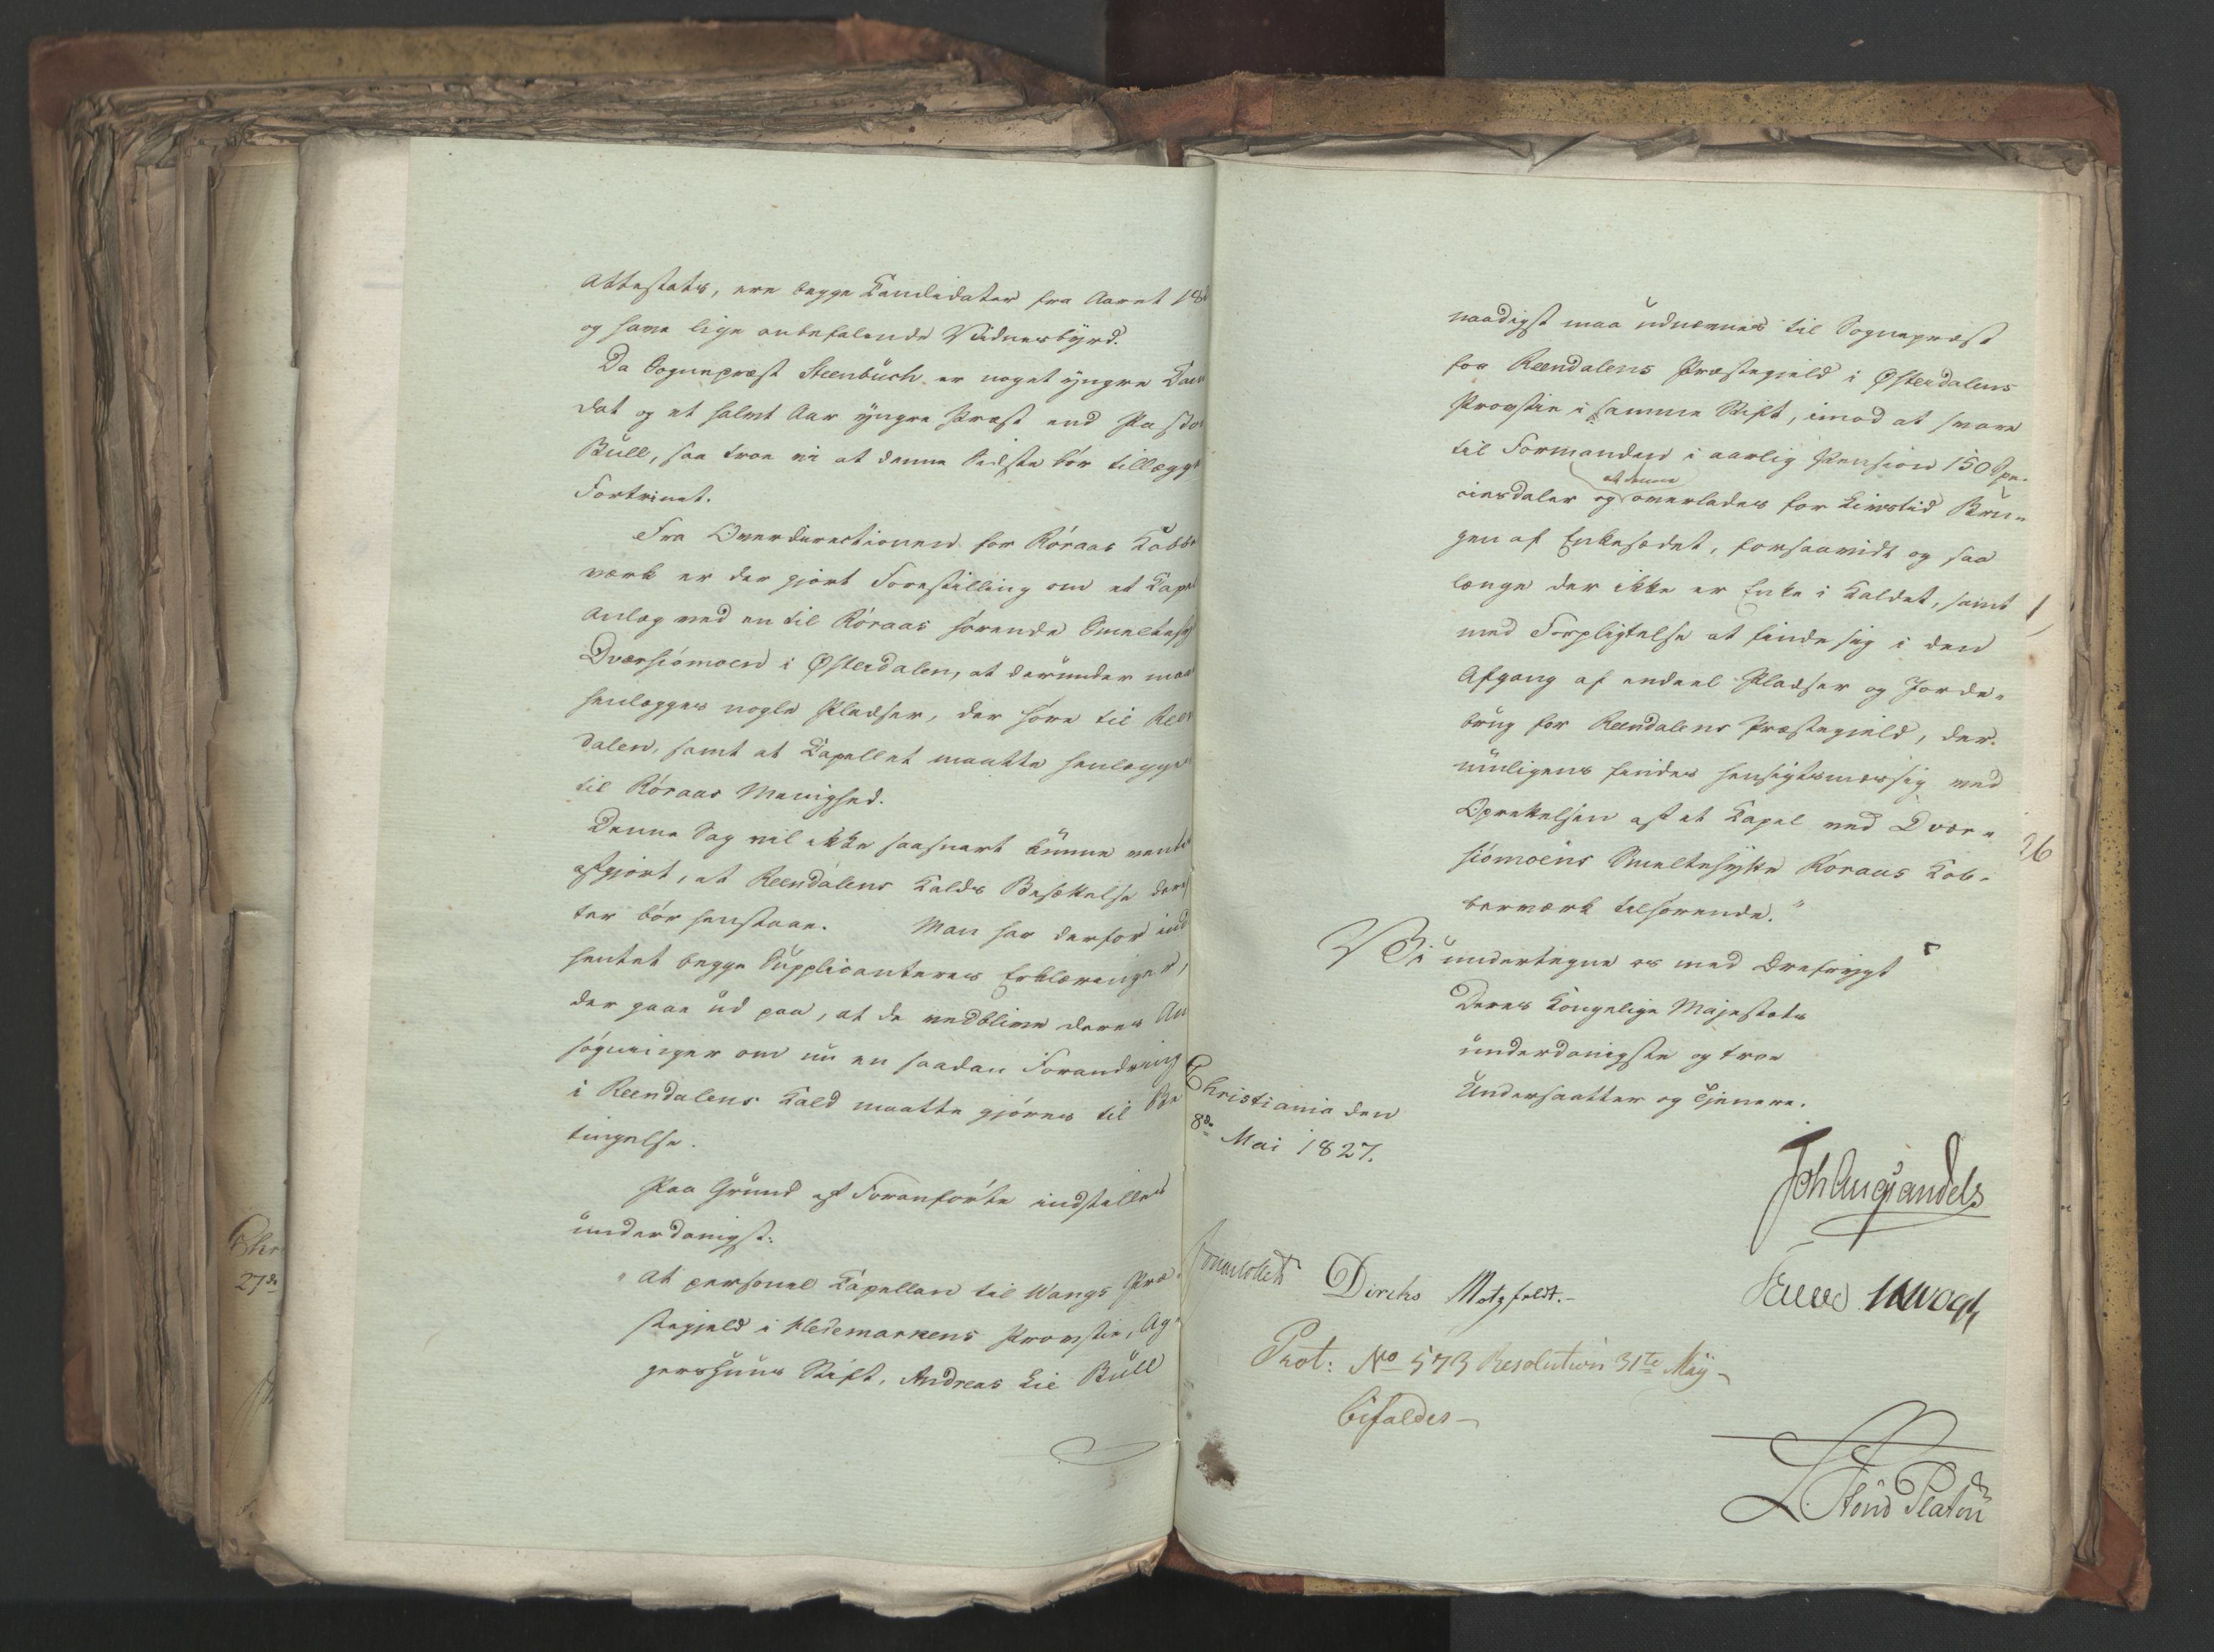 Attestats, ere begge Kandidater fra Aaret 18
og have lige anbefalende Vidnesbyrd.
Da Sognepræst Steenbuch er noget yngre Kan
dat og et halvt Aar yngre Præst end Pastor
Bull, saa troe vi at denne Sidste bør tillægge
Fortrinet.
Fra Overdirectionen for Røraas Kobber
værk er der gjort Forestilling om et Kapel
Anlæg ved en til Røraas hørende Smeltehyt
Dværsiømoen i Østerdalen, at derunder maa
henlægges nogle Pladser, der høre til Reen
dalen, samt at Kapellet maatte henlægges
til Røraas Menighed.
Denne Sag vil ikke saasnart kunne ventes
afgjort, at Reendalens Kalds Besættelse deref
ter bør henstaae. Man har derfor ind
hentet begge Supplicanteres Erklæringer,
der gaae ud paa, at de vedblive deres An
søgninger om nu en saadan Forandring
i Reendalens Kald maatte gjøres til Be
tingelse.
Paa Grund af Foranførte indstilles
underdanigst:
"At personel Kapellan til Wangs Præ-
stegjeld i Hedemarkens Provstie, Ag-
gershuus Stift, Andreas Lie Bull
naadigst maa udnævnes til Sognepræst
for Reendalens Præstegjeld i Østerdalens
Provstie i samme Stift, imod at svare
til Formanden i aarlig Pension 150 Spe-
ciesdaler og at denne overlades for Livstid Bru-
gen af Enkesædet, forsaavidt og saa
længe der ikke er Enke i Kaldet, samt
med Forpligtelse at finde sig i den
Afgang af endeel Pladser og Jorde-
brug for Reendalens Præstegjeld, der
muligens findes hensigtsmæssig ved
Oprettelsen af et Kapel ved Dvær-
siømoens Smeltehytte Røraas Kob-
berværk tilhørende."
26
Vi undertegne os med Ærefrygt
Deres Kongelige Majestæts
underdanigste og troe
Undersaatter og Tjenere.
Christiania den
8de Mai 1827.
Joh Aug Sandels
Diriks Motzfeldt.
Prot: No 573 Resolution 31te Maÿ
bifaldes